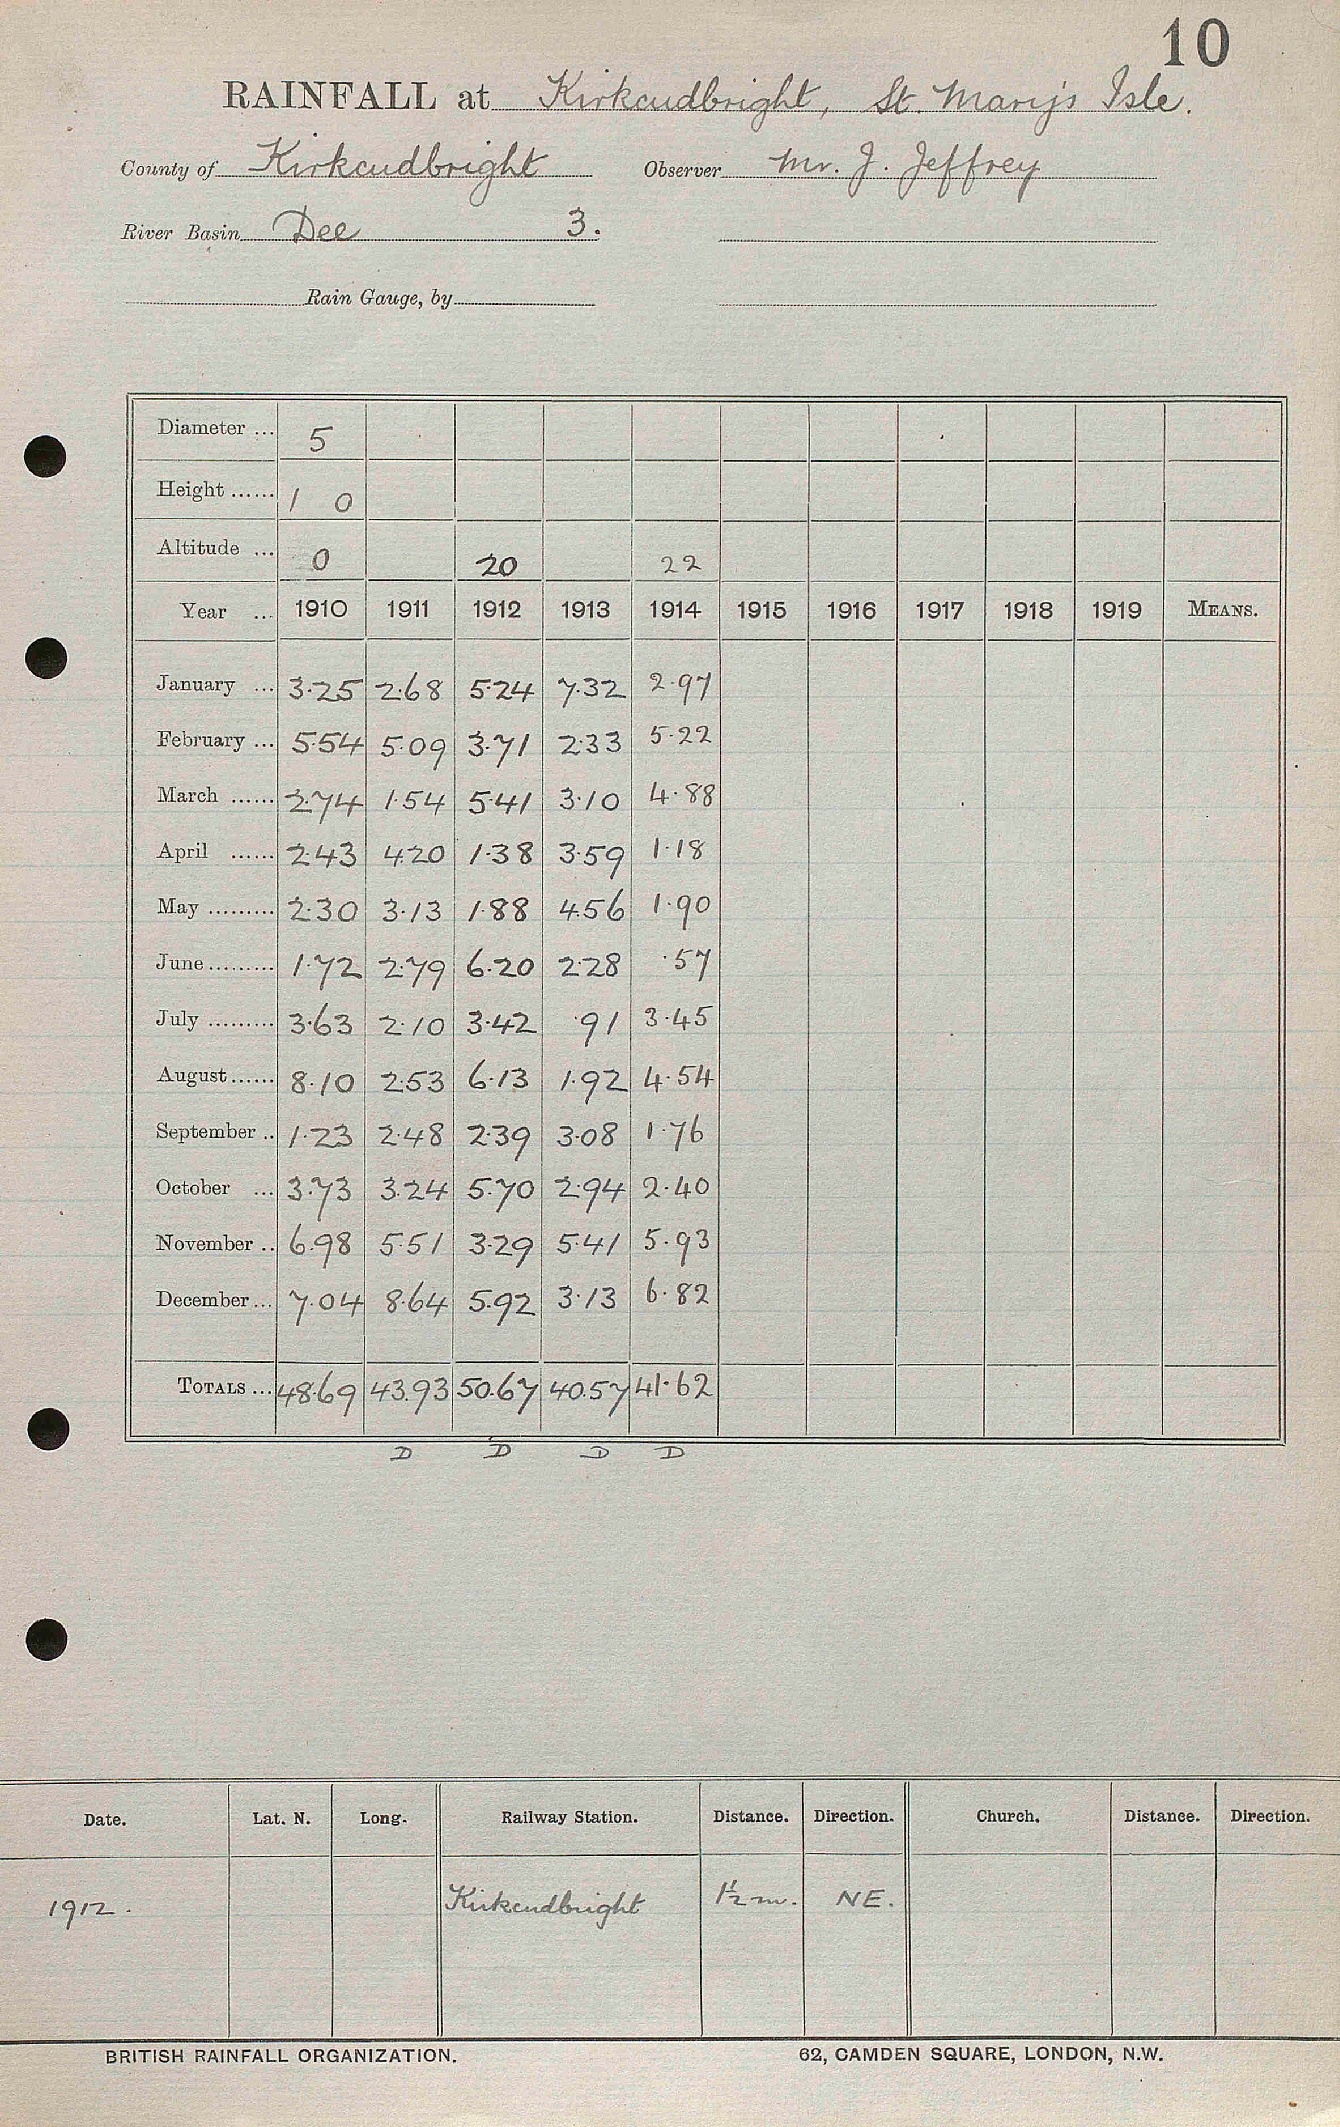 10
RAINFALL at Kirkcudbright, St. Mary's Isle.
County of Kirkcudbright Observer Mr. J. Jeffrey
River Basin Dee 3.
Rain Gauge, by
Diameter ... 5
Height ...... 1 0
Altitude ... 0 20 22
Year ... 1910 1911 1912 1913 1914 1915 1916 1917 1918 1919 MEANS.
January ... 3.25 2.68 5.24 7.32 2.97
February ... 5.54 5.09 3.71 2.33 5.22
March ...... 2.74 1.54 5.41 3.10 4.88
April ...... 2.43 4.20 1.38 3.59 1.18
May ......... 2.30 3.13 1.88 4.56 1.90
June ......... 1.72 2.79 6.20 2.28 .57
July ......... 3.63 2.10 3.42 .91 3.45
August ...... 8.10 2.53 6.13 1.92 4.54
September .. 1.23 2.48 2.39 3.08 1.76
October ... 3.73 3.24 5.70 2.94 2.40
November .. 6.98 5.51 3.29 5.41 5.93
December ... 7.04 8.64 5.92 3.13 6.82
TOTALS ... 48.69 43.93 50.67 40.57 41.62
D D D D
Date. Lat. N. Long. Railway Station. Distance. Direction. Church. Distance. Direction.
1912. Kirkcudbright 1½ m. NE.
BRITISH RAINFALL ORGANIZATION. 62, CAMDEN SQUARE, LONDON, N.W.